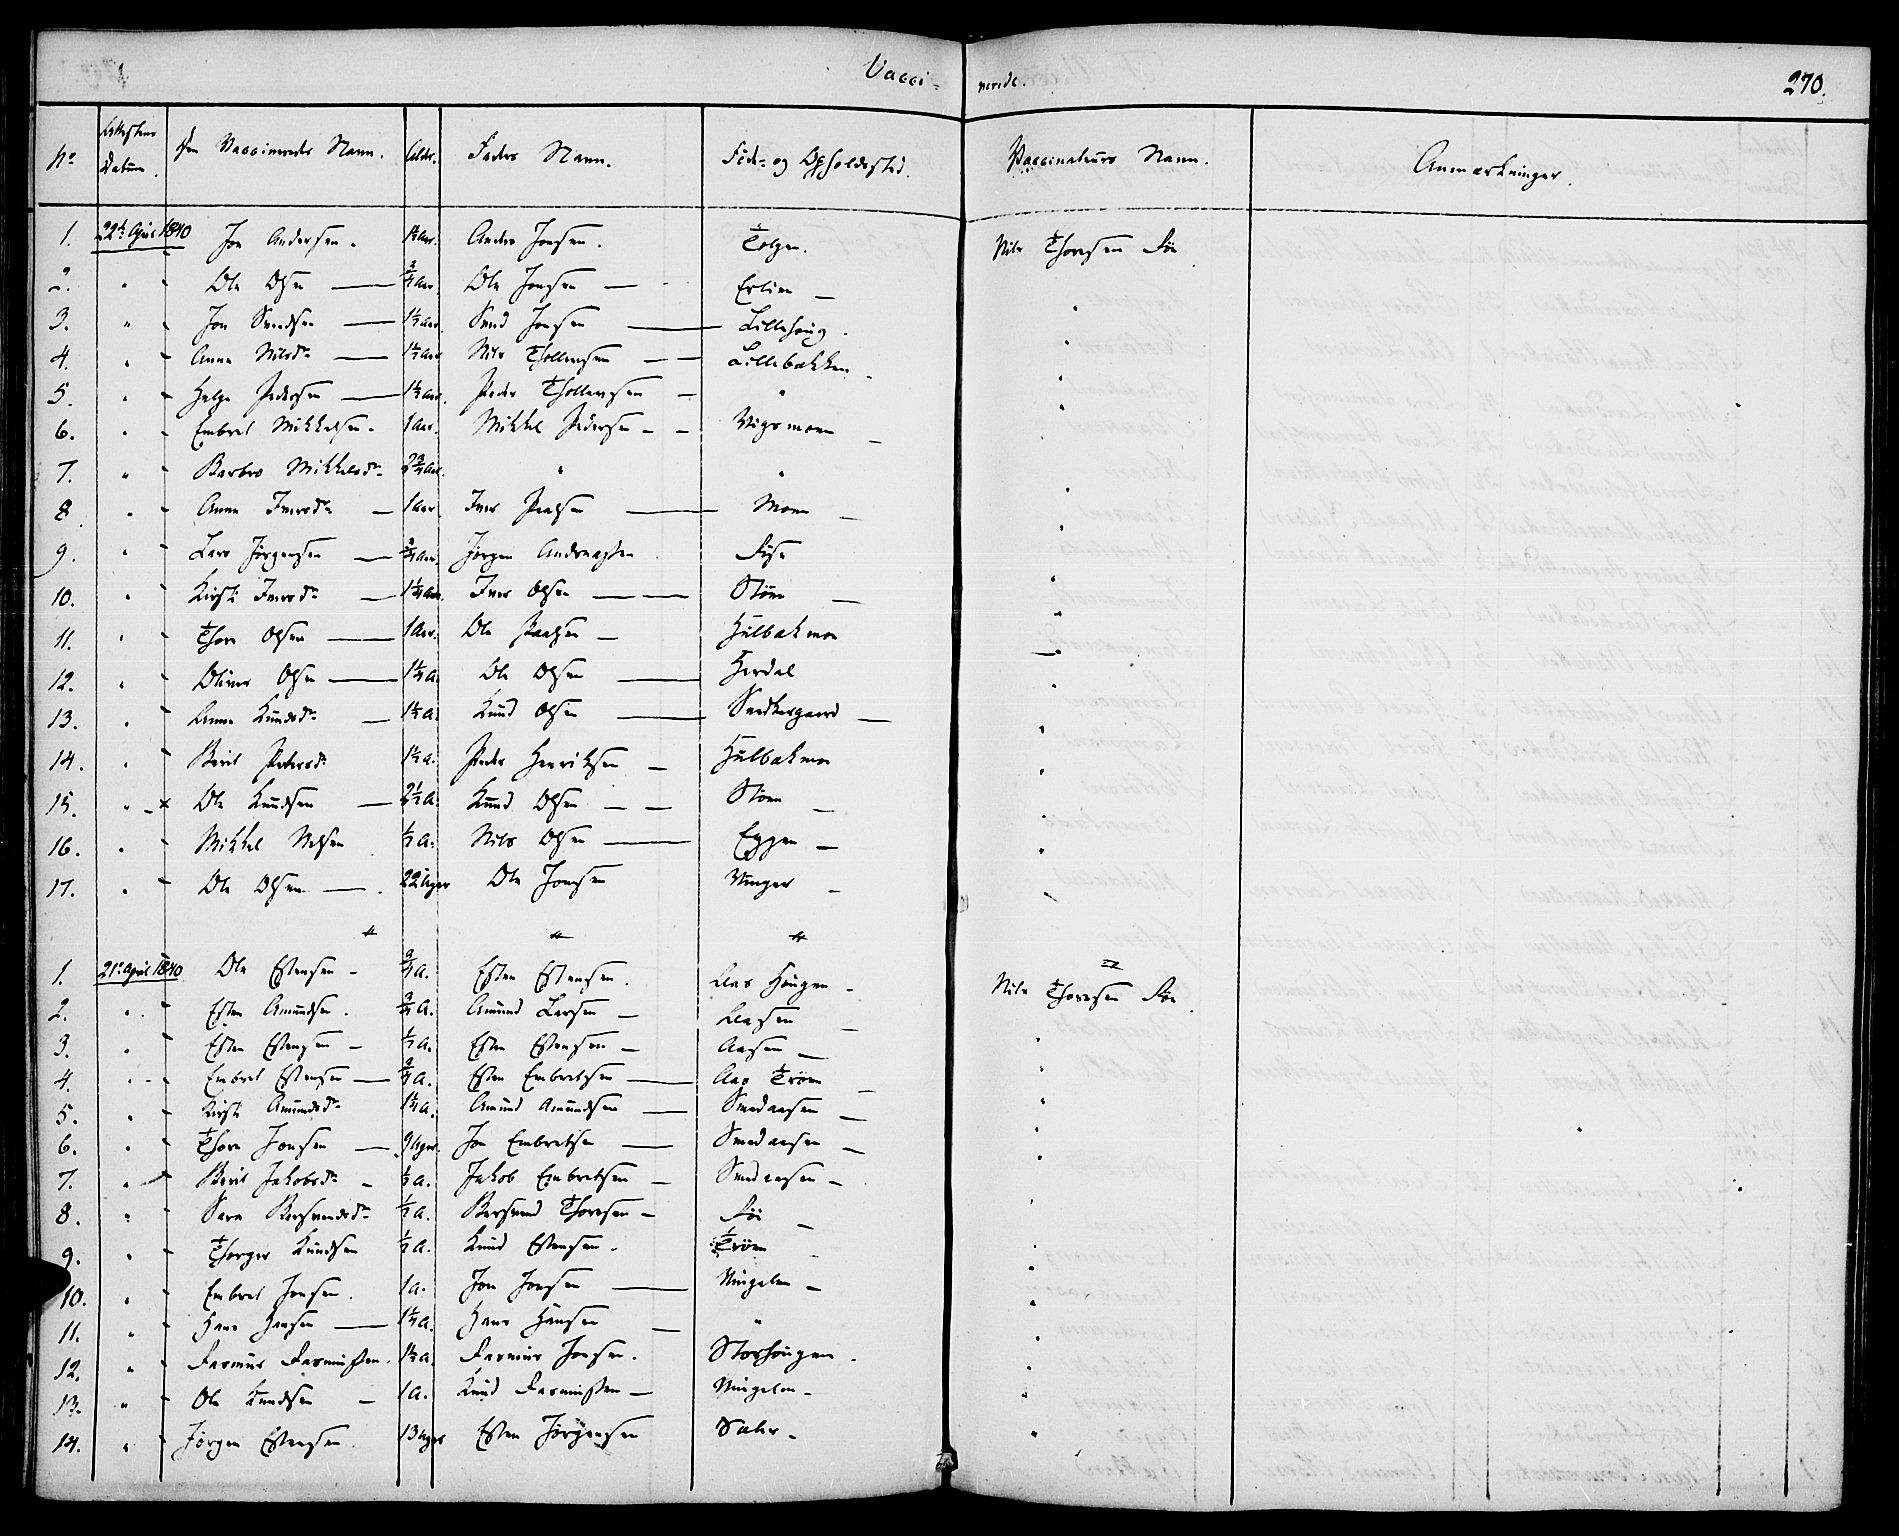 Vacci-
nerede.
270.
No Attestens Datum. Den Vaccineredes Navn. Alder. Faders Navn. Føde- og Opholdssted. Vaccinateurs Navn. Anmærkninger.
1. 22de April 1840 Jon Andersen. 1½ Aar. Anders Jonsen. Tolgen. Nils Thoresen Fæ
2. " Ole Olsen ¾ Aar. Ole Jonsen Erlien
3. " Jon Svendsen 1½ Aar. Svend Jonsen Lillehoug. "
4. " Anne Nilsdr 1½ Aar Nils Thollevsen Lillebakken "
5. " Helge Pedersen 1½ Aar. Peder Thollevsen " "
6. " Embret Mikkelsen. 1 Aar. Mikkel Pedersen Vigsmoen "
7. " Barbro Mikkelsdr 2¾ Aar. " "
8. " Anne Iversdr 1 Aar. Iver Paalsen Moen "
9. " Lars Jørgensen ¾ Aar. Jørgen Andreassen "
10. " Kirsti Iversdr 1¼ Aar. Iver Olsen Støen "
11. " Thore Olsen 1 Aar. Ole Paalsen Hulbakmoe "
12. " Oliver Olsen 1½ A. Ole Olsen Hordal "
13. " Anne Knudsdr 1½ A. Knud Olsen "
14. " Berit Pedersdr 1½ A. Peder Henriksen Hulbakmoe "
15. " Ole Knudsen 2½ A. Knud Olsen Støen "
16. " Mikkel Nilsen ½ A. Nils Olsen Eggen "
17. " Ole Olsen 22 Uger Ole Jonsen "
1. 21de April 1840 Ole Estensen ¾ A. Esten Estensen. Aas Hougen Nils Thoresen Fæ
2. " Esten Amundsen. ¾ A. Amund Larsen Aasen
3. " Esten Estensen ½ A. Esten Estensen Aasen "
4. " Embret Estensen ¾ A. Esten Embretsen Aas Trøen "
5. " Kirsti Amundsdr 1½ A. Amund Amundsen Smedaasen "
6. " Thore Jonsen 9 Uger. Jon Embretsen Smedaasen "
7. " Berit Jakobsdr ½ A. Jakob Embretsen Smedaasen "
8. " Sara Bersvendsdr ½ A. Bersvend Thoresen "
9. " Thorger Knudsen ½ A. Knud Estensen. Trøen "
10. " Embret Jonsen. 1 A. Jon Jonsen Vingelen "
11. " Hans Hansen 1½ A. Hans Hansen " "
12. " Rasmus Rasmussen. 1½ A. Rasmus Jonsen. Storhougen "
13. " Ole Knudsen 1 A. Knud Rasmussen Vingelen "
14. " Jørgen Estensen. 13 Uger Esten Jørgensen "